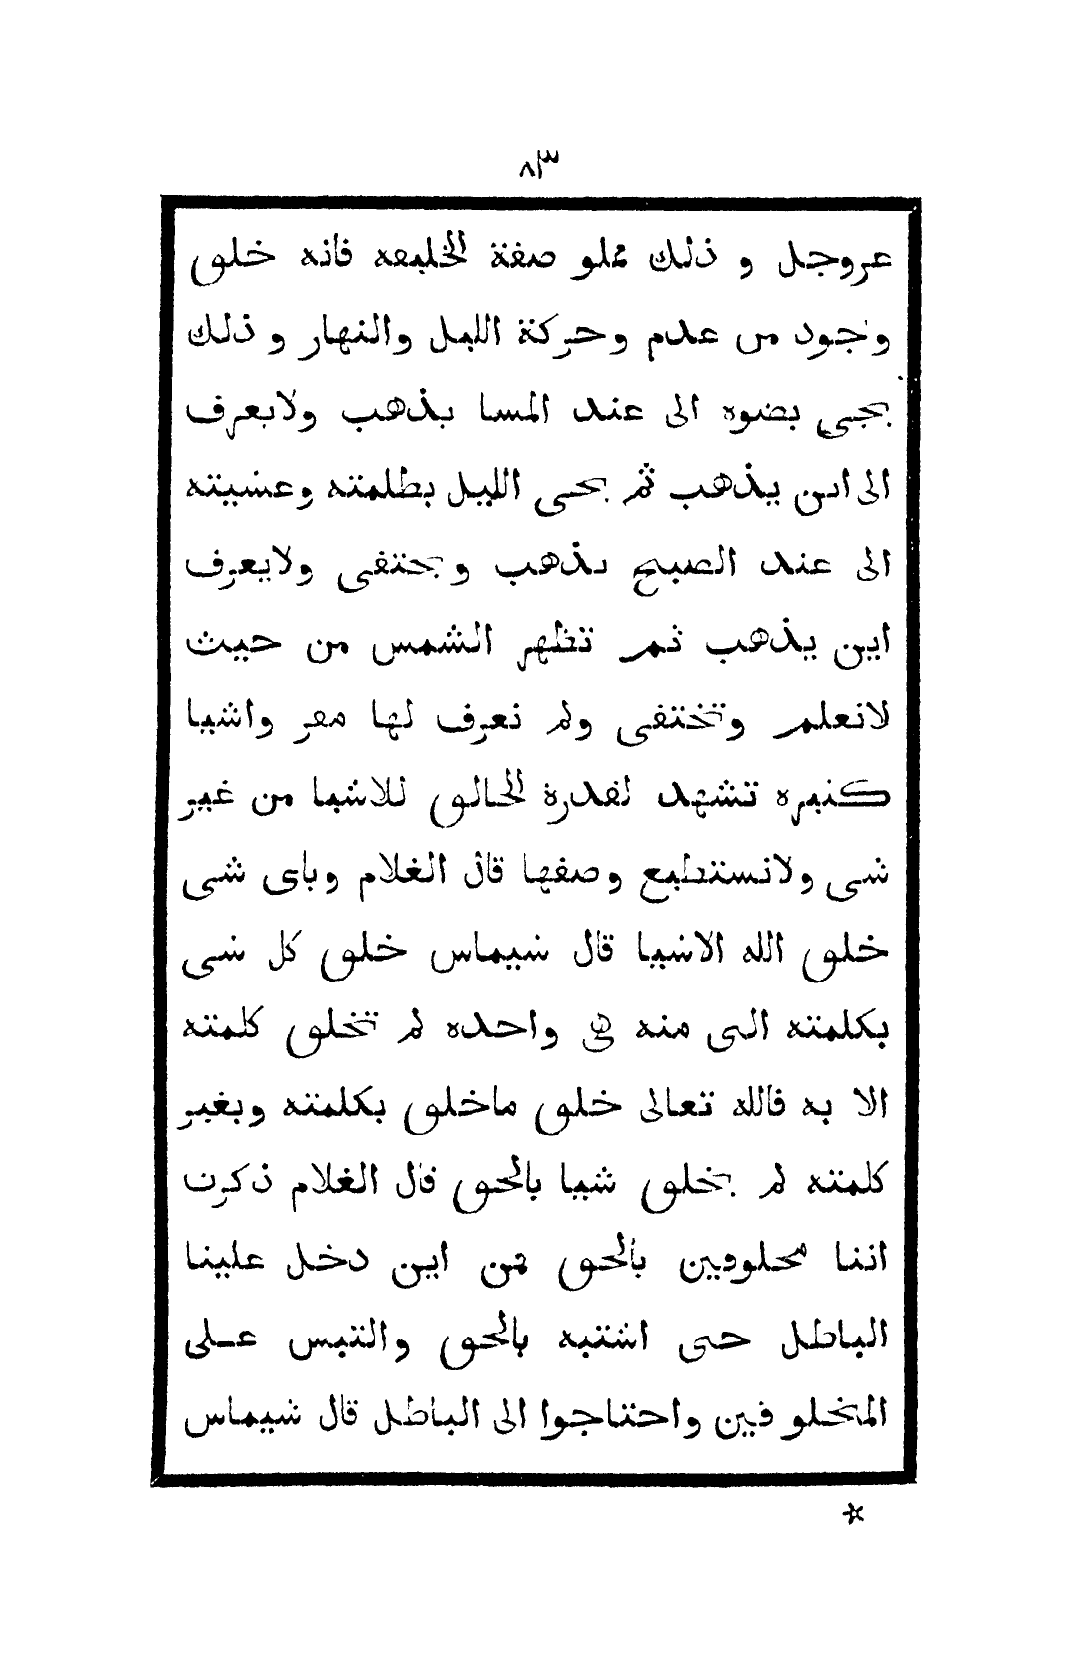 ٨٣
عزوجل و ذلك مملو صفة الخليقه فانه خلق
وجود من عدم وحركة الليل والنهار و ذلك
يجى بضوه الى عند المسا يذهب ولايعرف
الى اين يذهب ثم يجى الليل بظلمته وعشيته
الى عند الصبح يذهب ويختفى ولايعرف
اين يذهب ثم تظهر الشمس من حيث
لانعلم وتختفى ولم نعرف لها مقر واشيا
كثيره تشهد لقدرة الخالق للاشيا من غير
شى ولانستطيع وصفها قال الغلام وباى شى
خلق الله الاشيا قال شيماس خلق كل شى
بكلمته التى منه فى واحده لم تخلق كلمته
الا به فالله تعالى خلق ماخلق بكلمته وبغير
كلمته لم يخلق شيا بالحق قال الغلام ذكرت
اننا مخلوقين بالحق فمن اين دخل علينا
الباطل حتى اشتبه بالحق والتبس على
المخلو قين واحتاجوا الى الباطل قال شيماس